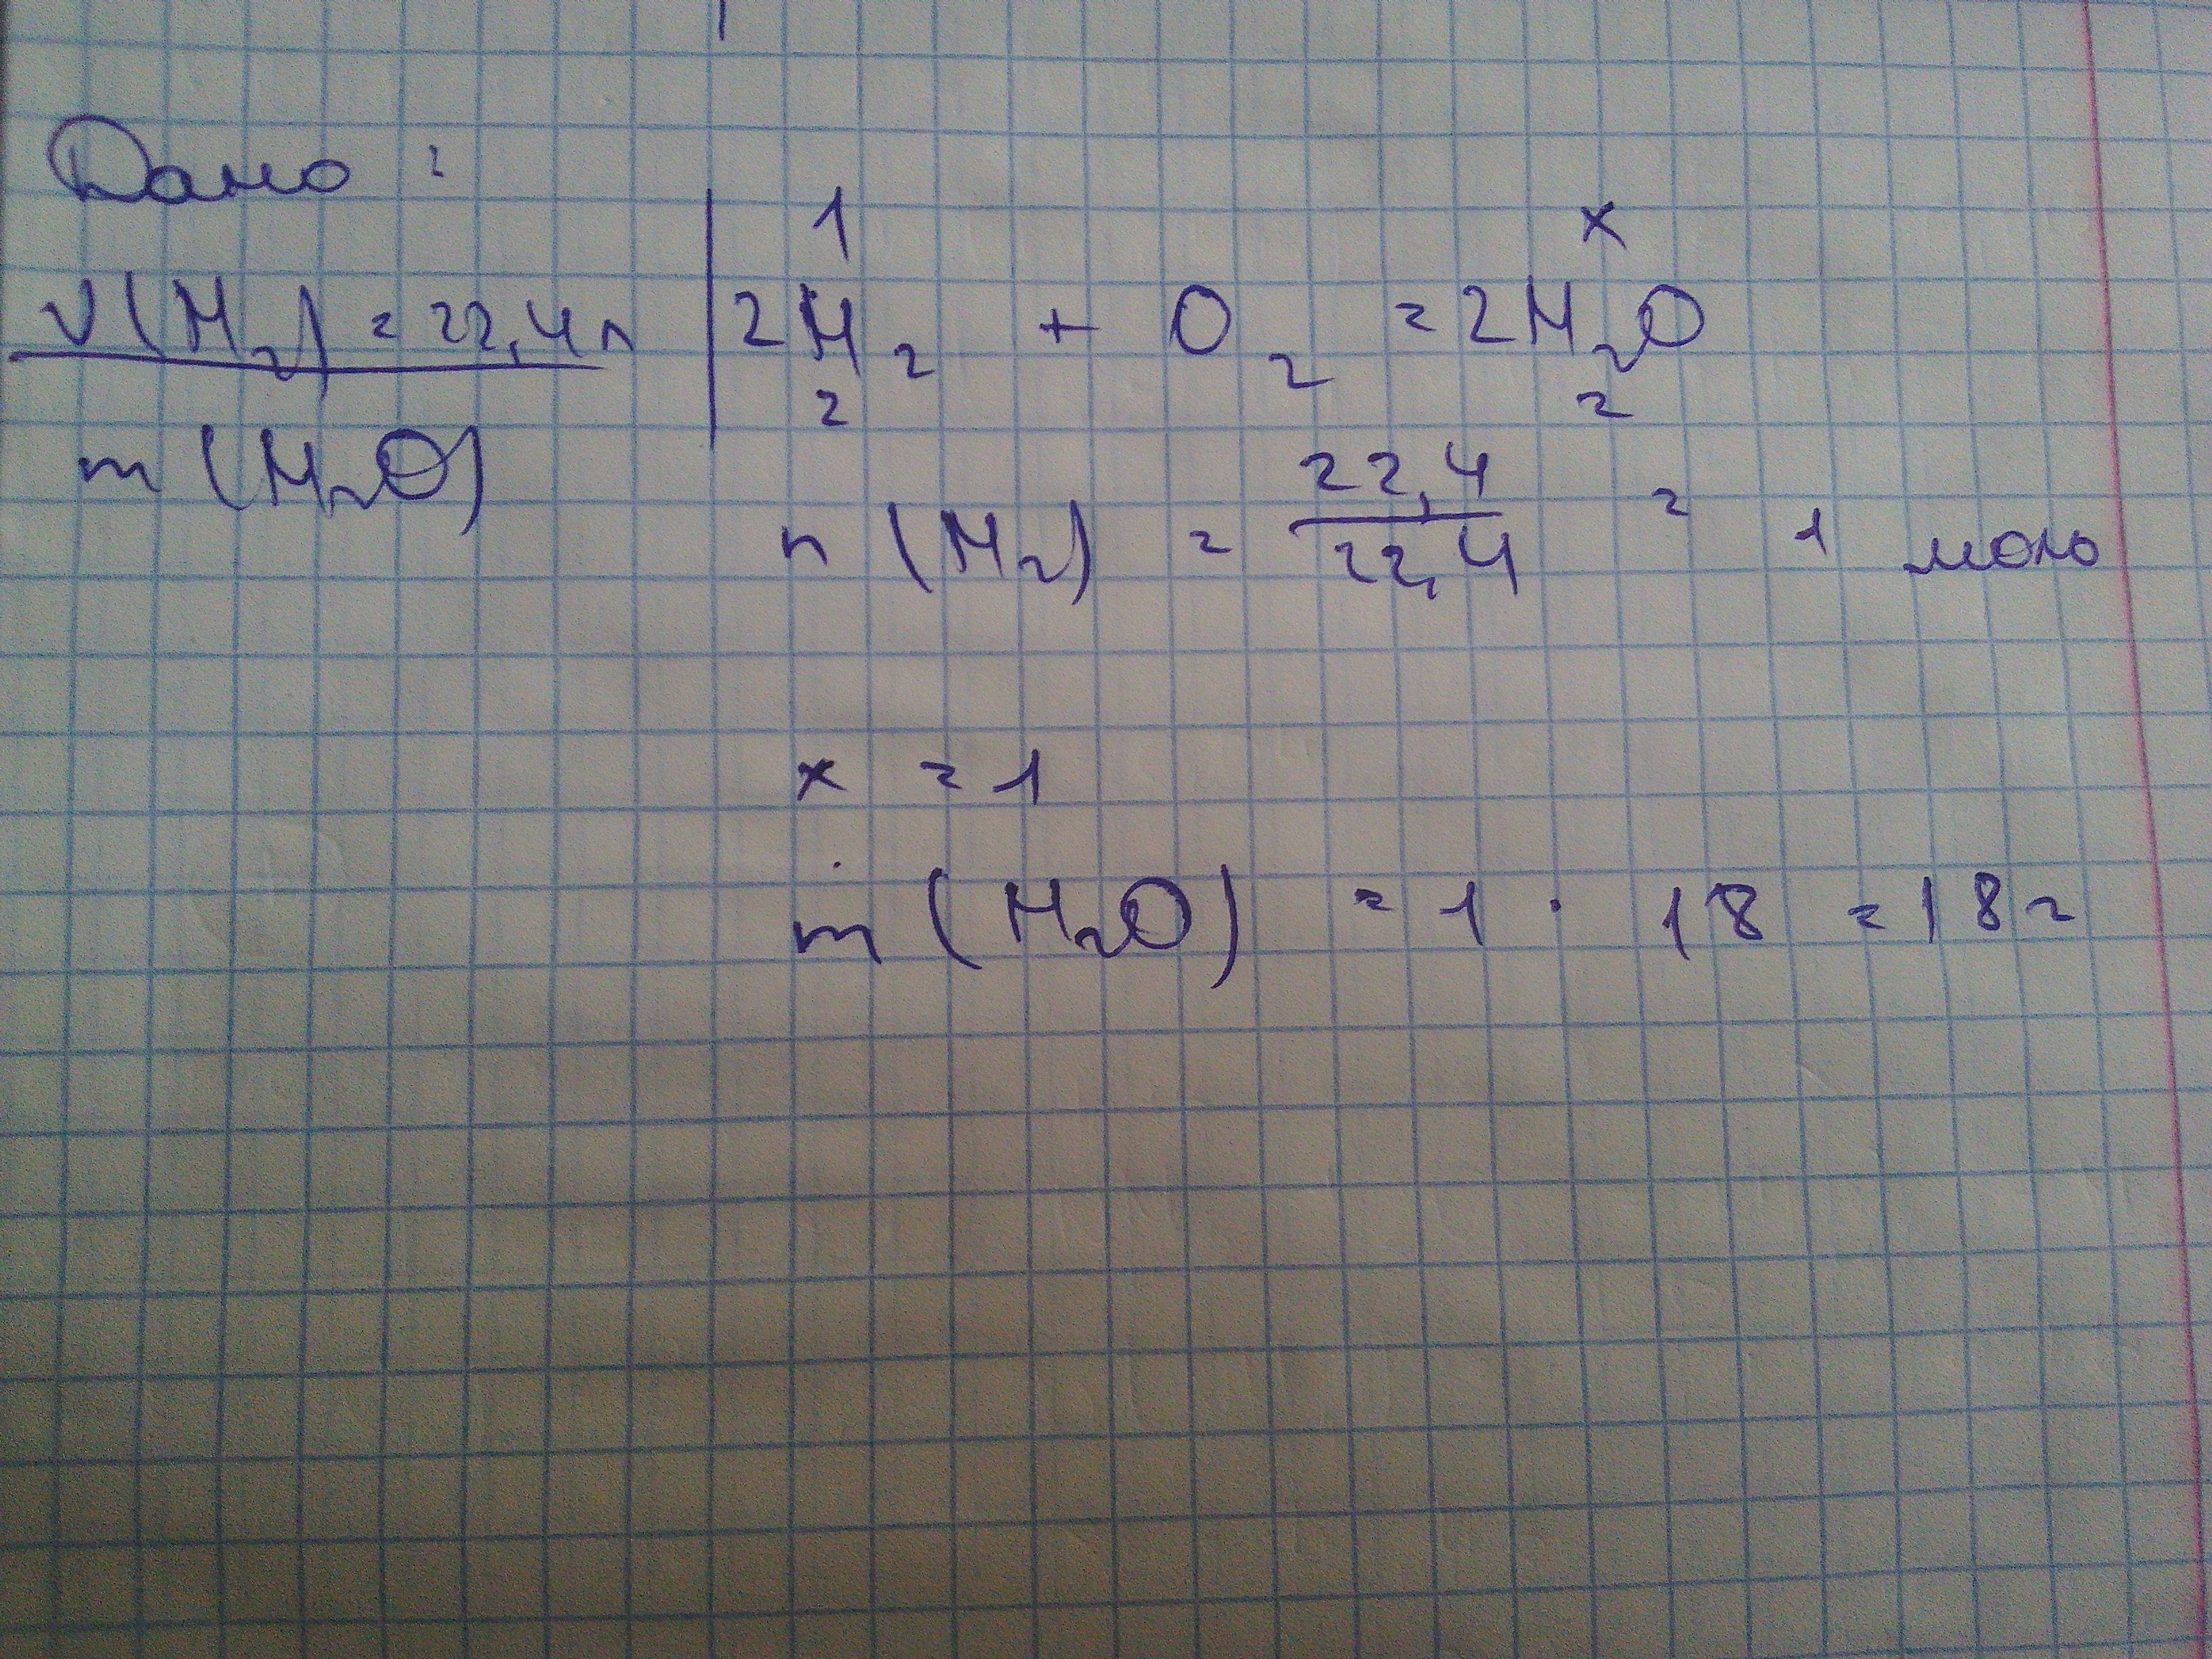 Дано:
V(H₂) = 22,4 л
m(H₂O)
1 x
2H₂ + O₂ = 2H₂O
2 2
n(H₂) = 22,4/22,4 = 1 моль
x = 1
m(H₂O) = 1 · 18 = 18 г